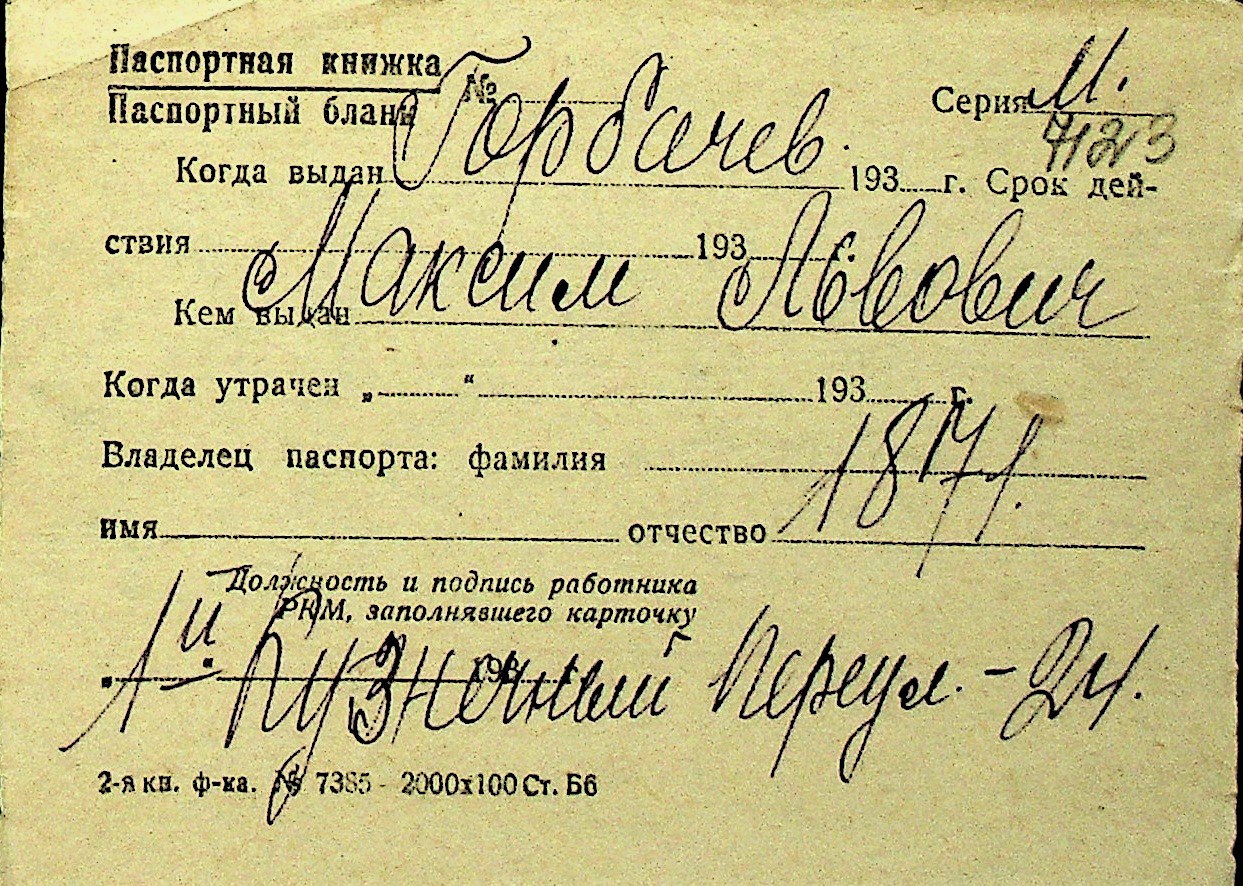 Паспортная книжка
Паспортный бланк № Горбачев. Серия М.
7123
Когда выдан 193 г. Срок дей-
ствия 193 г.
Максим Львович
Кем выдан
Когда утрачен „ “ 193 г.
Владелец паспорта: фамилия
1871.
имя отчество
Должность и подпись работника
РКМ, заполнявшего карточку
„ 193
1й Кузнечный переул. - 24.
2-я кн. ф-ка. № 7385 - 2000х100 Ст. Б6